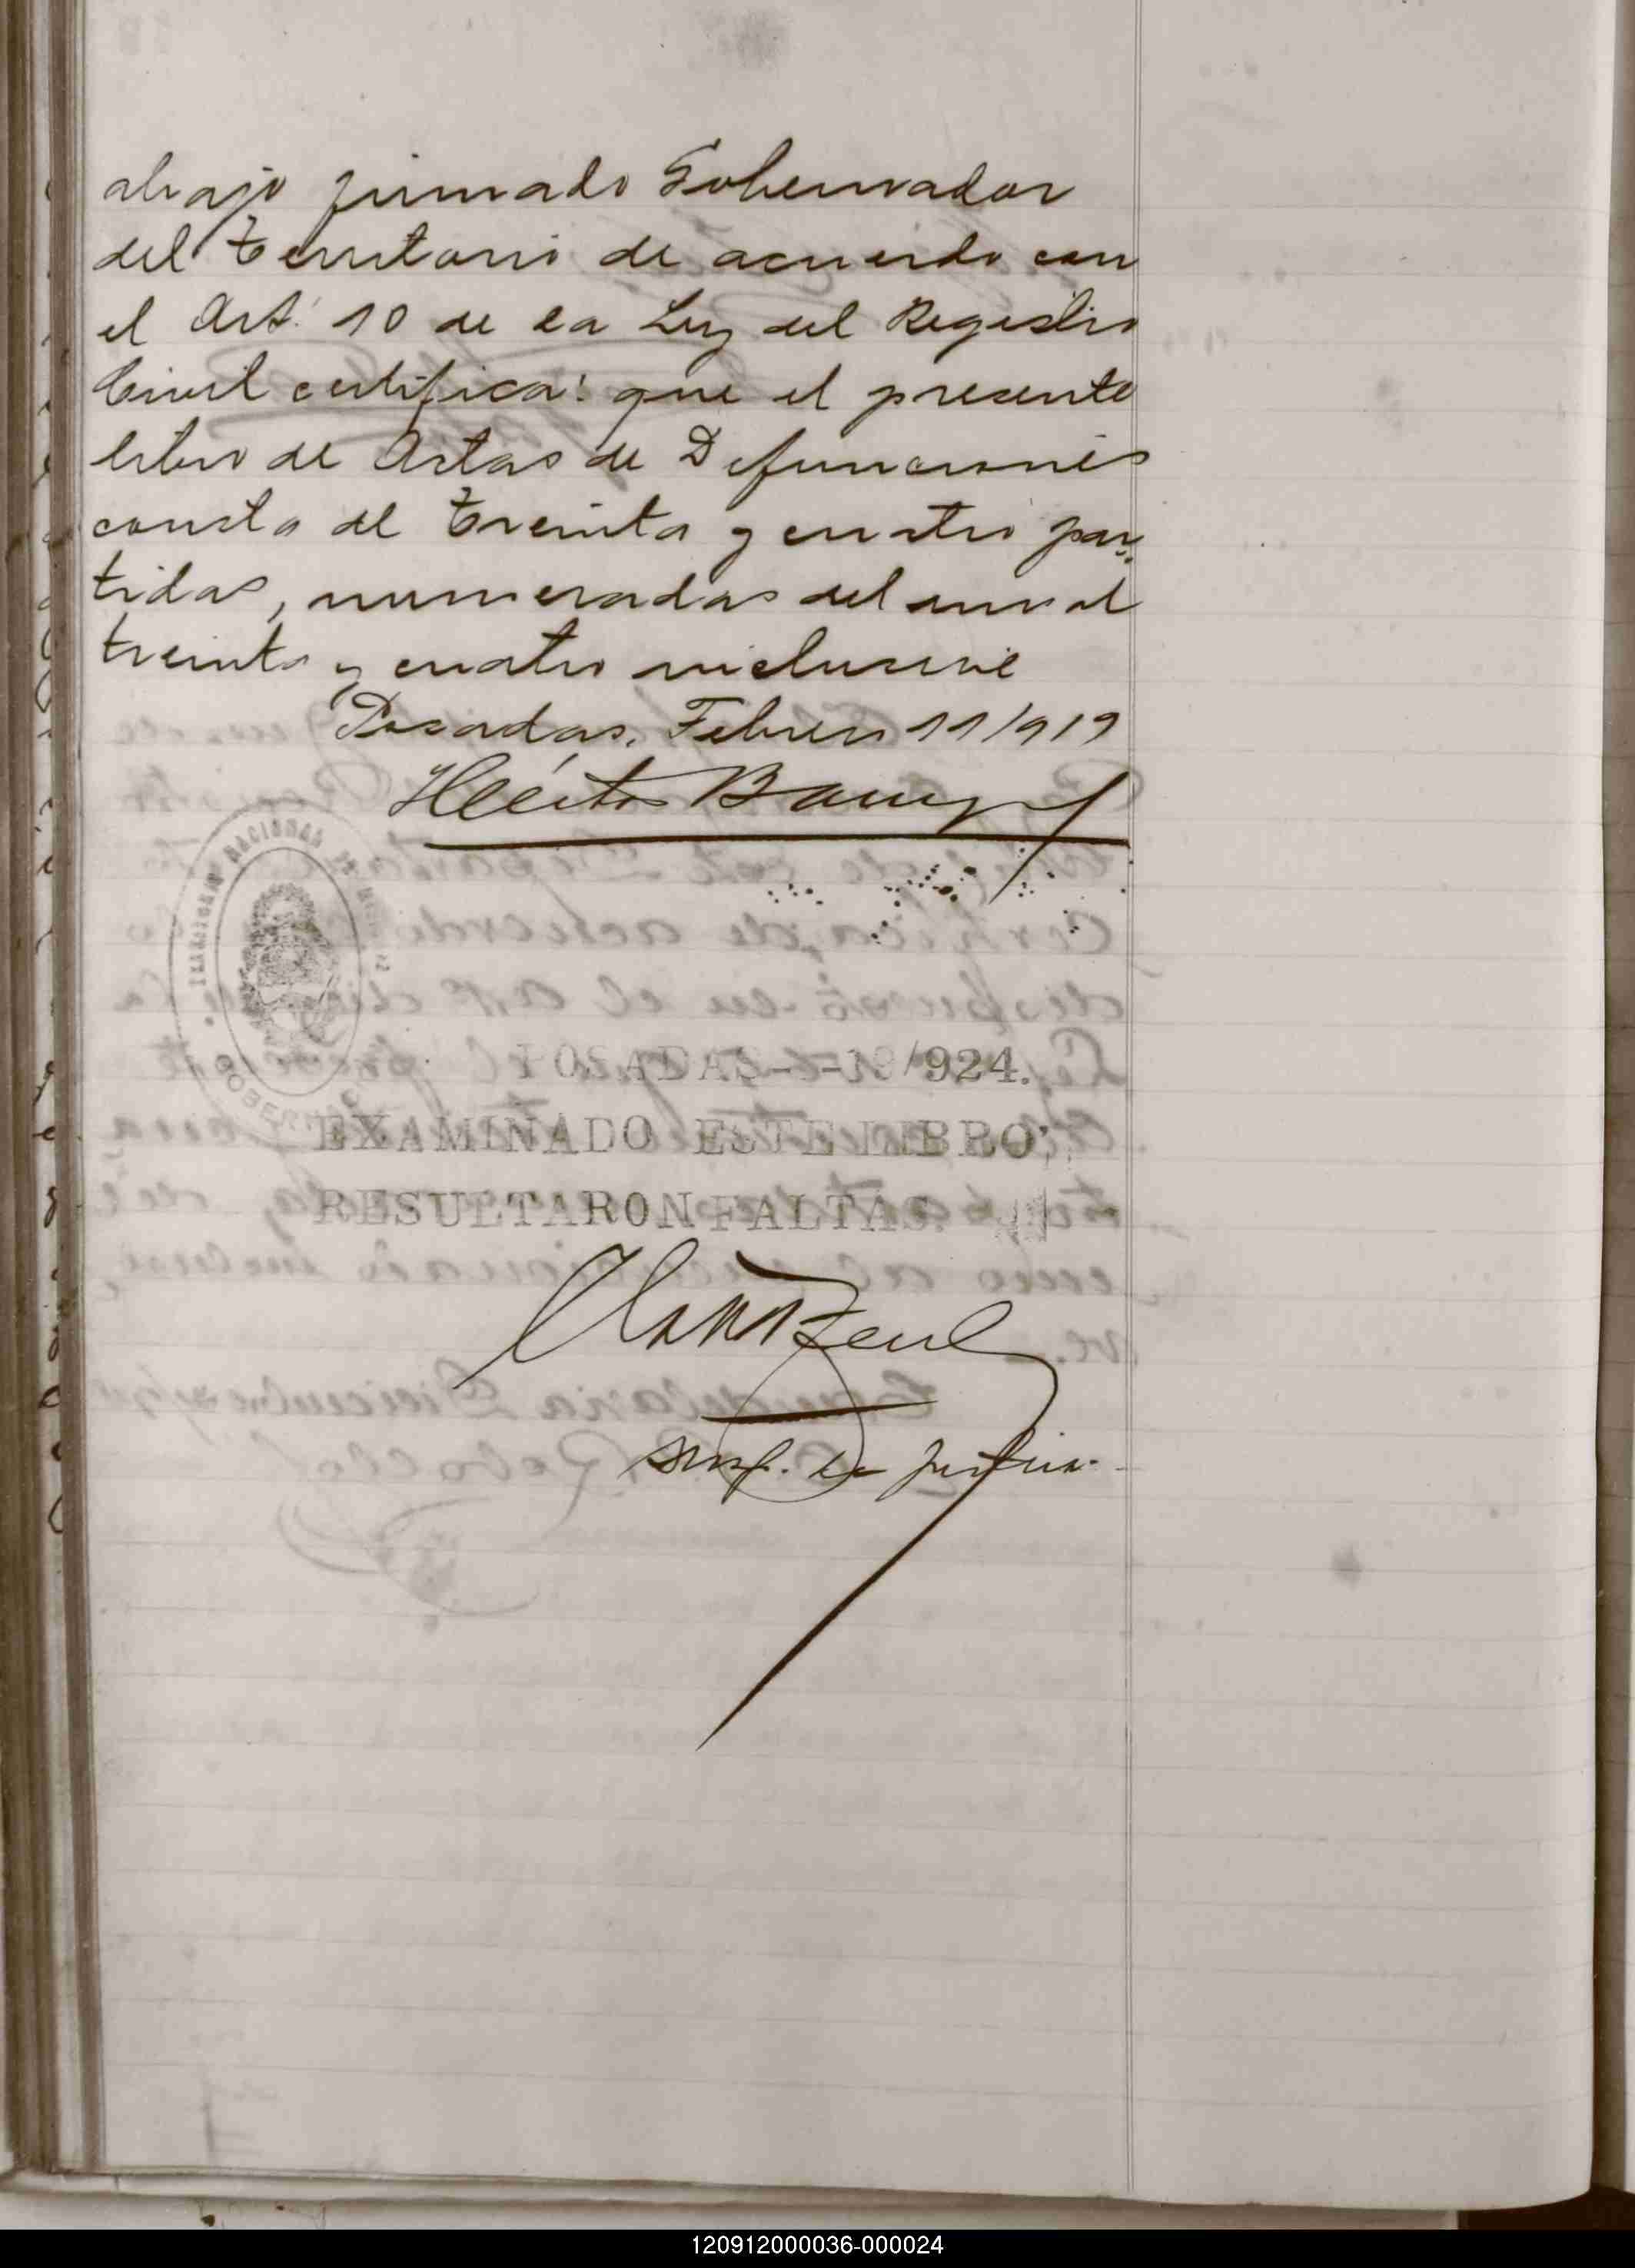 abajo firmado Gobernador
del Territorio de acuerdo con
el Art. 10 de la Ley del Registro
Civil certifica: que el presente
libro de Actas de Defunciones
consta de treinta y cuatro par-
tidas, numeradas del uno al
treinta y cuatro inclusive
Posadas, Febrero 11/919
Héctor Barreyro
GOBERN
POSADAS- -19/924.
EXAMINADO ESTE LIBRO
RESULTARON FALTAS.
Insp. de Justicia.
120912000036-000024